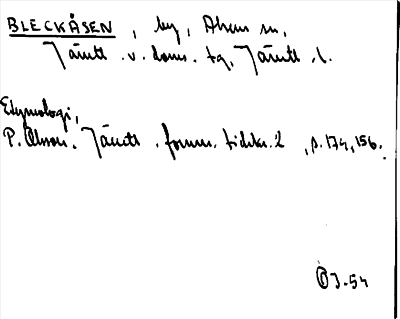 BLECKÅSEN, by, Alsens sn,
Jämtl. v. doms. tg, Jämtl. l.
Etymologi,
P. Olsson. Jämtl. fornm. tidskr. 2, s. 174, 156.
J-54